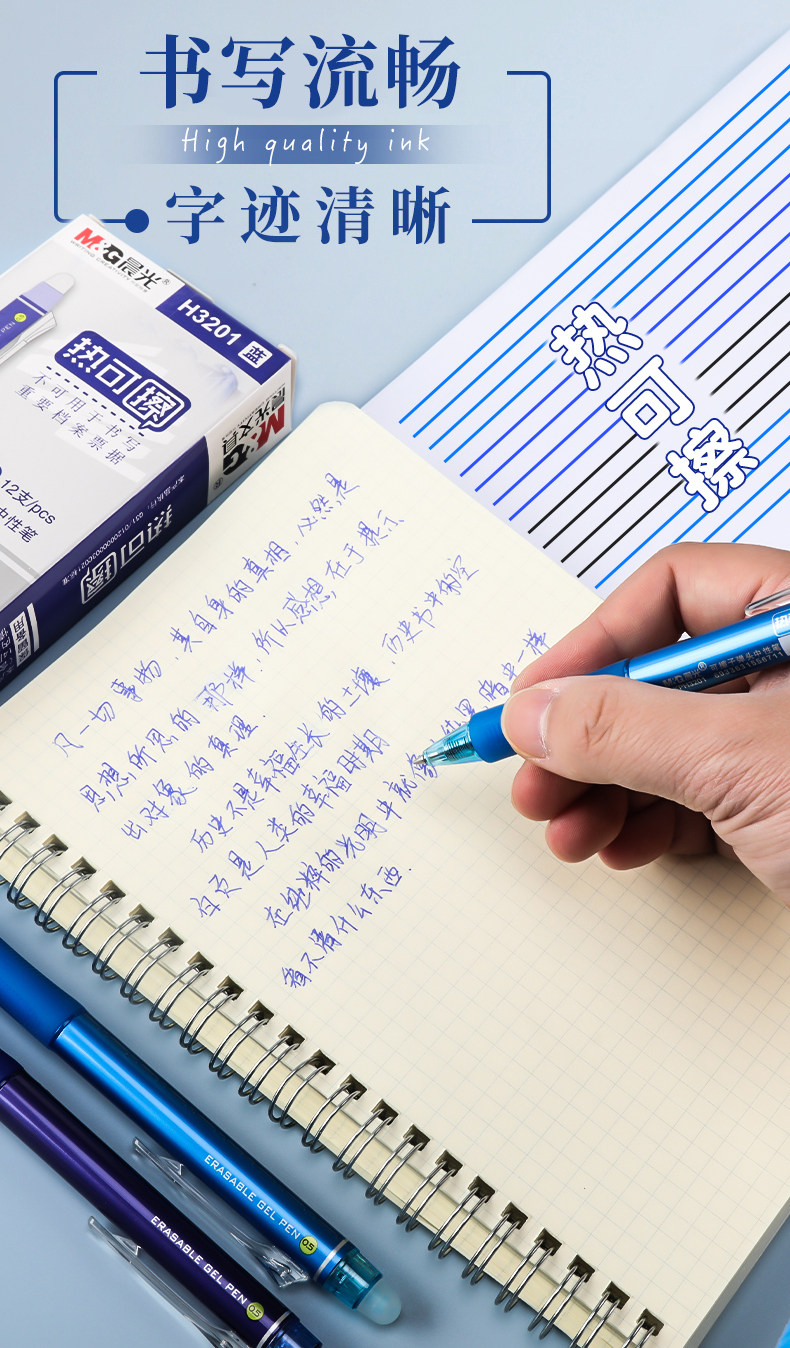 书写流畅
High quality ink
字迹清晰
M&G晨光®
H3201 蓝
PEN
热可擦
不可用于书写
重要档案票据
12支/pcs
中性笔
M&G
晨光文具
热可擦
热可擦
凡一切事物,其自身的真相,必然是
思想所思的那样,所以思想,在于揭示
出对象的真理.
历史不是幸福生长的土壤,历史书中的空
白页是人类的幸福时期
在纯粹的光明中就像
看不清什么东西.
M&G晨光
6931631556711
ERASABLE GEL PEN 0.5
ERASABLE GEL PEN 0.5